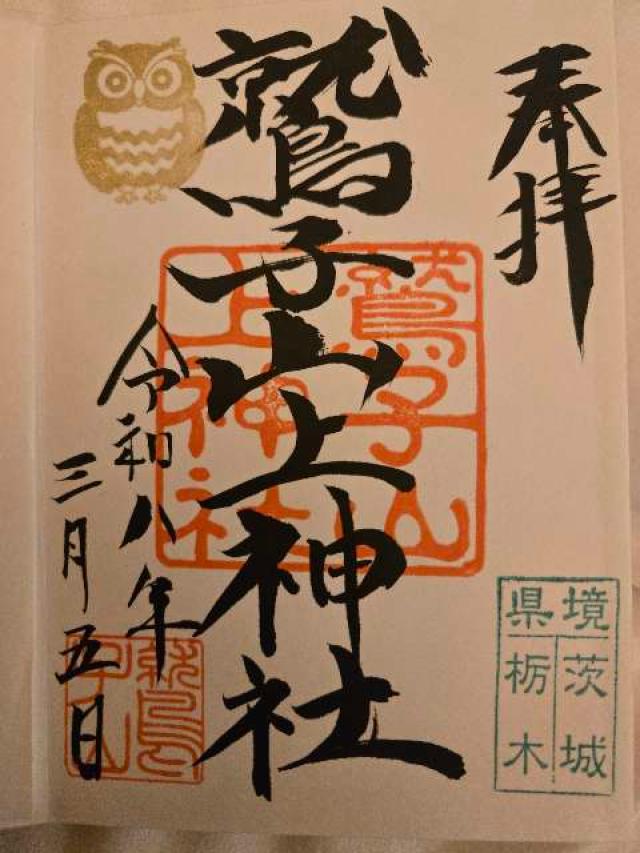 奉拝
鷲子山上神社
鷲子山
上神社
令和八年
三月五日
鷲
子山
県境
茨城
栃木